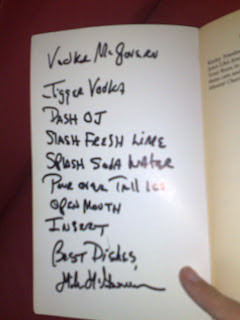 Vodka McGovern
Jigger Vodka
Dash OJ
Slash Fresh Lime
Splash Soda Water
Pour over Tall Ice
Open Mouth
Insert
Best Dishes,